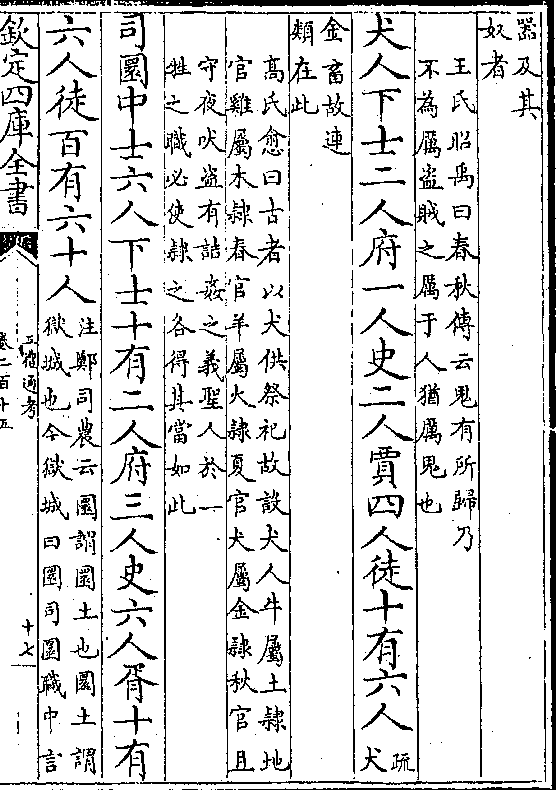 器及其
奴者
王氏昭禹曰春秋傳云鬼有所歸乃
不為厲盜賊之厲于人猶厲鬼也
犬人下士二人府一人史二人賈四人徒十有六人疏犬
金畜故連
類在此
高氏愈曰古者以犬供祭祀故設犬人牛屬土隸地
官雞屬木隸春官羊屬火隸夏官犬屬金隸秋官且
守夜吠盜有詰姦之義聖人於一
牲之職必使隸之各得其當如此
司圜中士六人下士十有二人府三人史六人胥十有
六人徒百有六十人注鄭司農云圜謂圜土也圜土謂
獄城也今獄城曰圜司圜職中言
欽定四庫全書
五禮通考
卷二百十五
十七